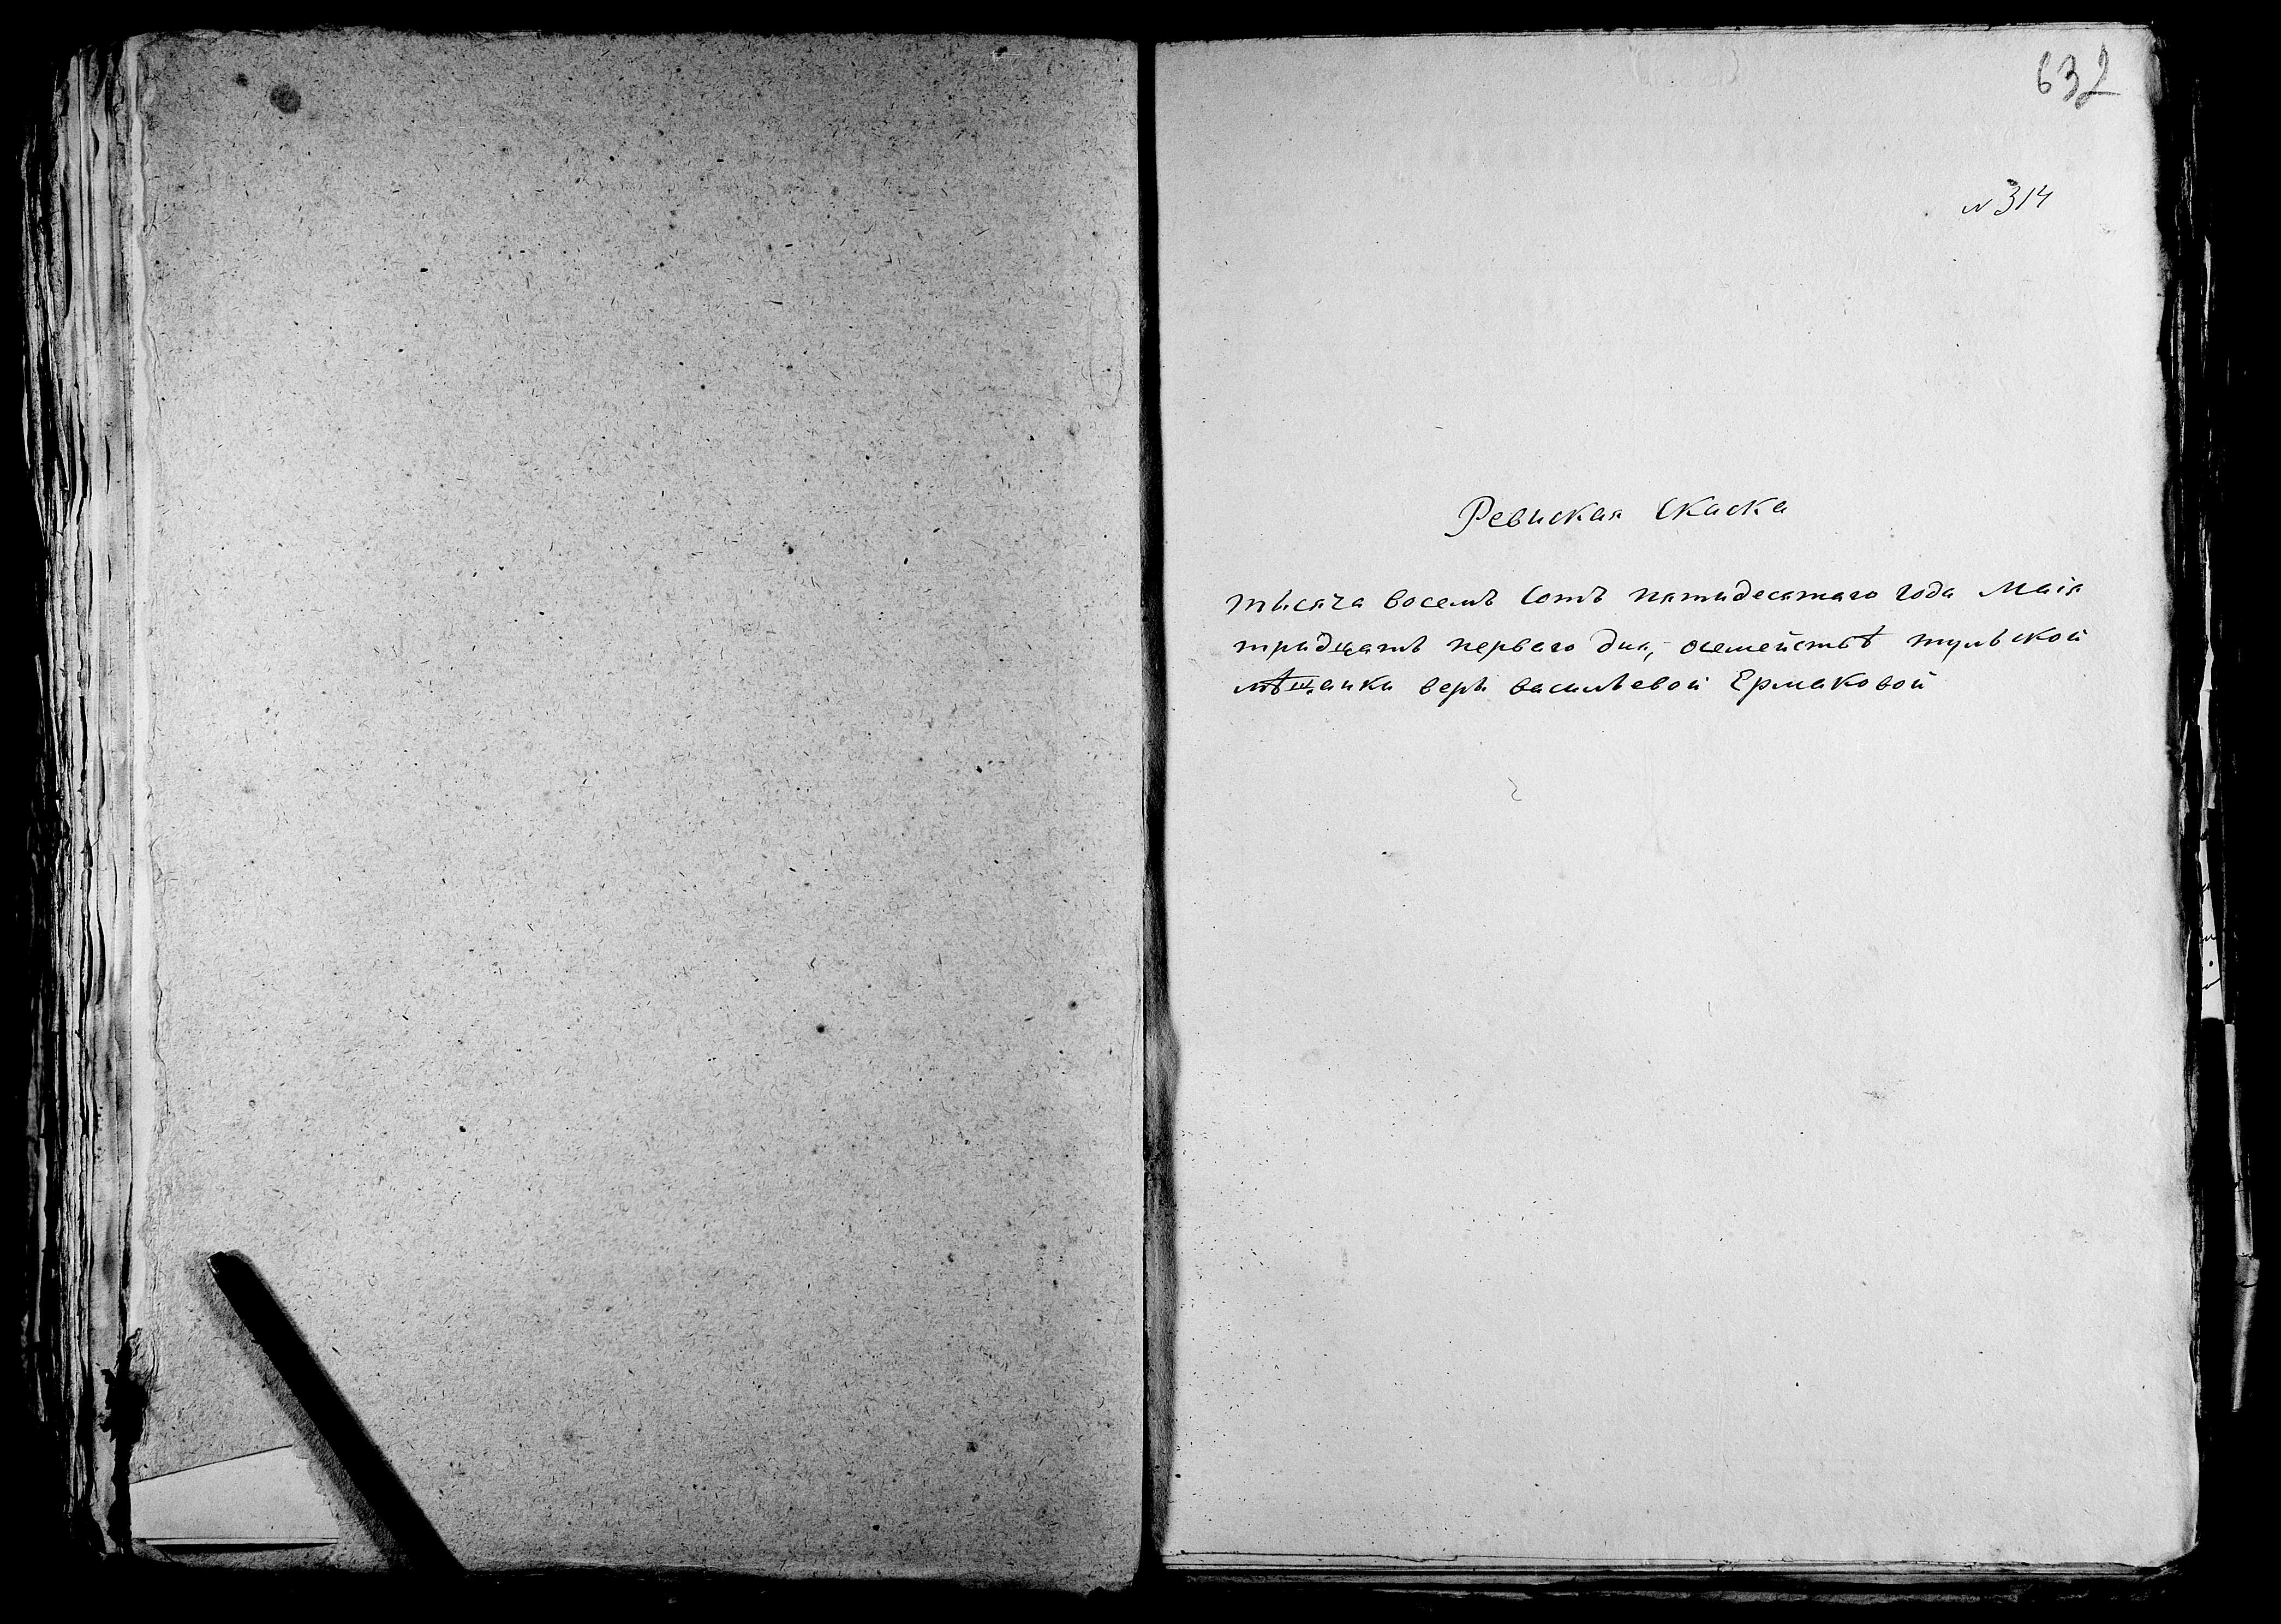 632
№ 314
Ревиская Скаска
тысяча восемь сотъ пятидесятаго года Маія
тридцать перваго дня, осемействѣ тульской
мѣщанки веры васильевой Ермаковой